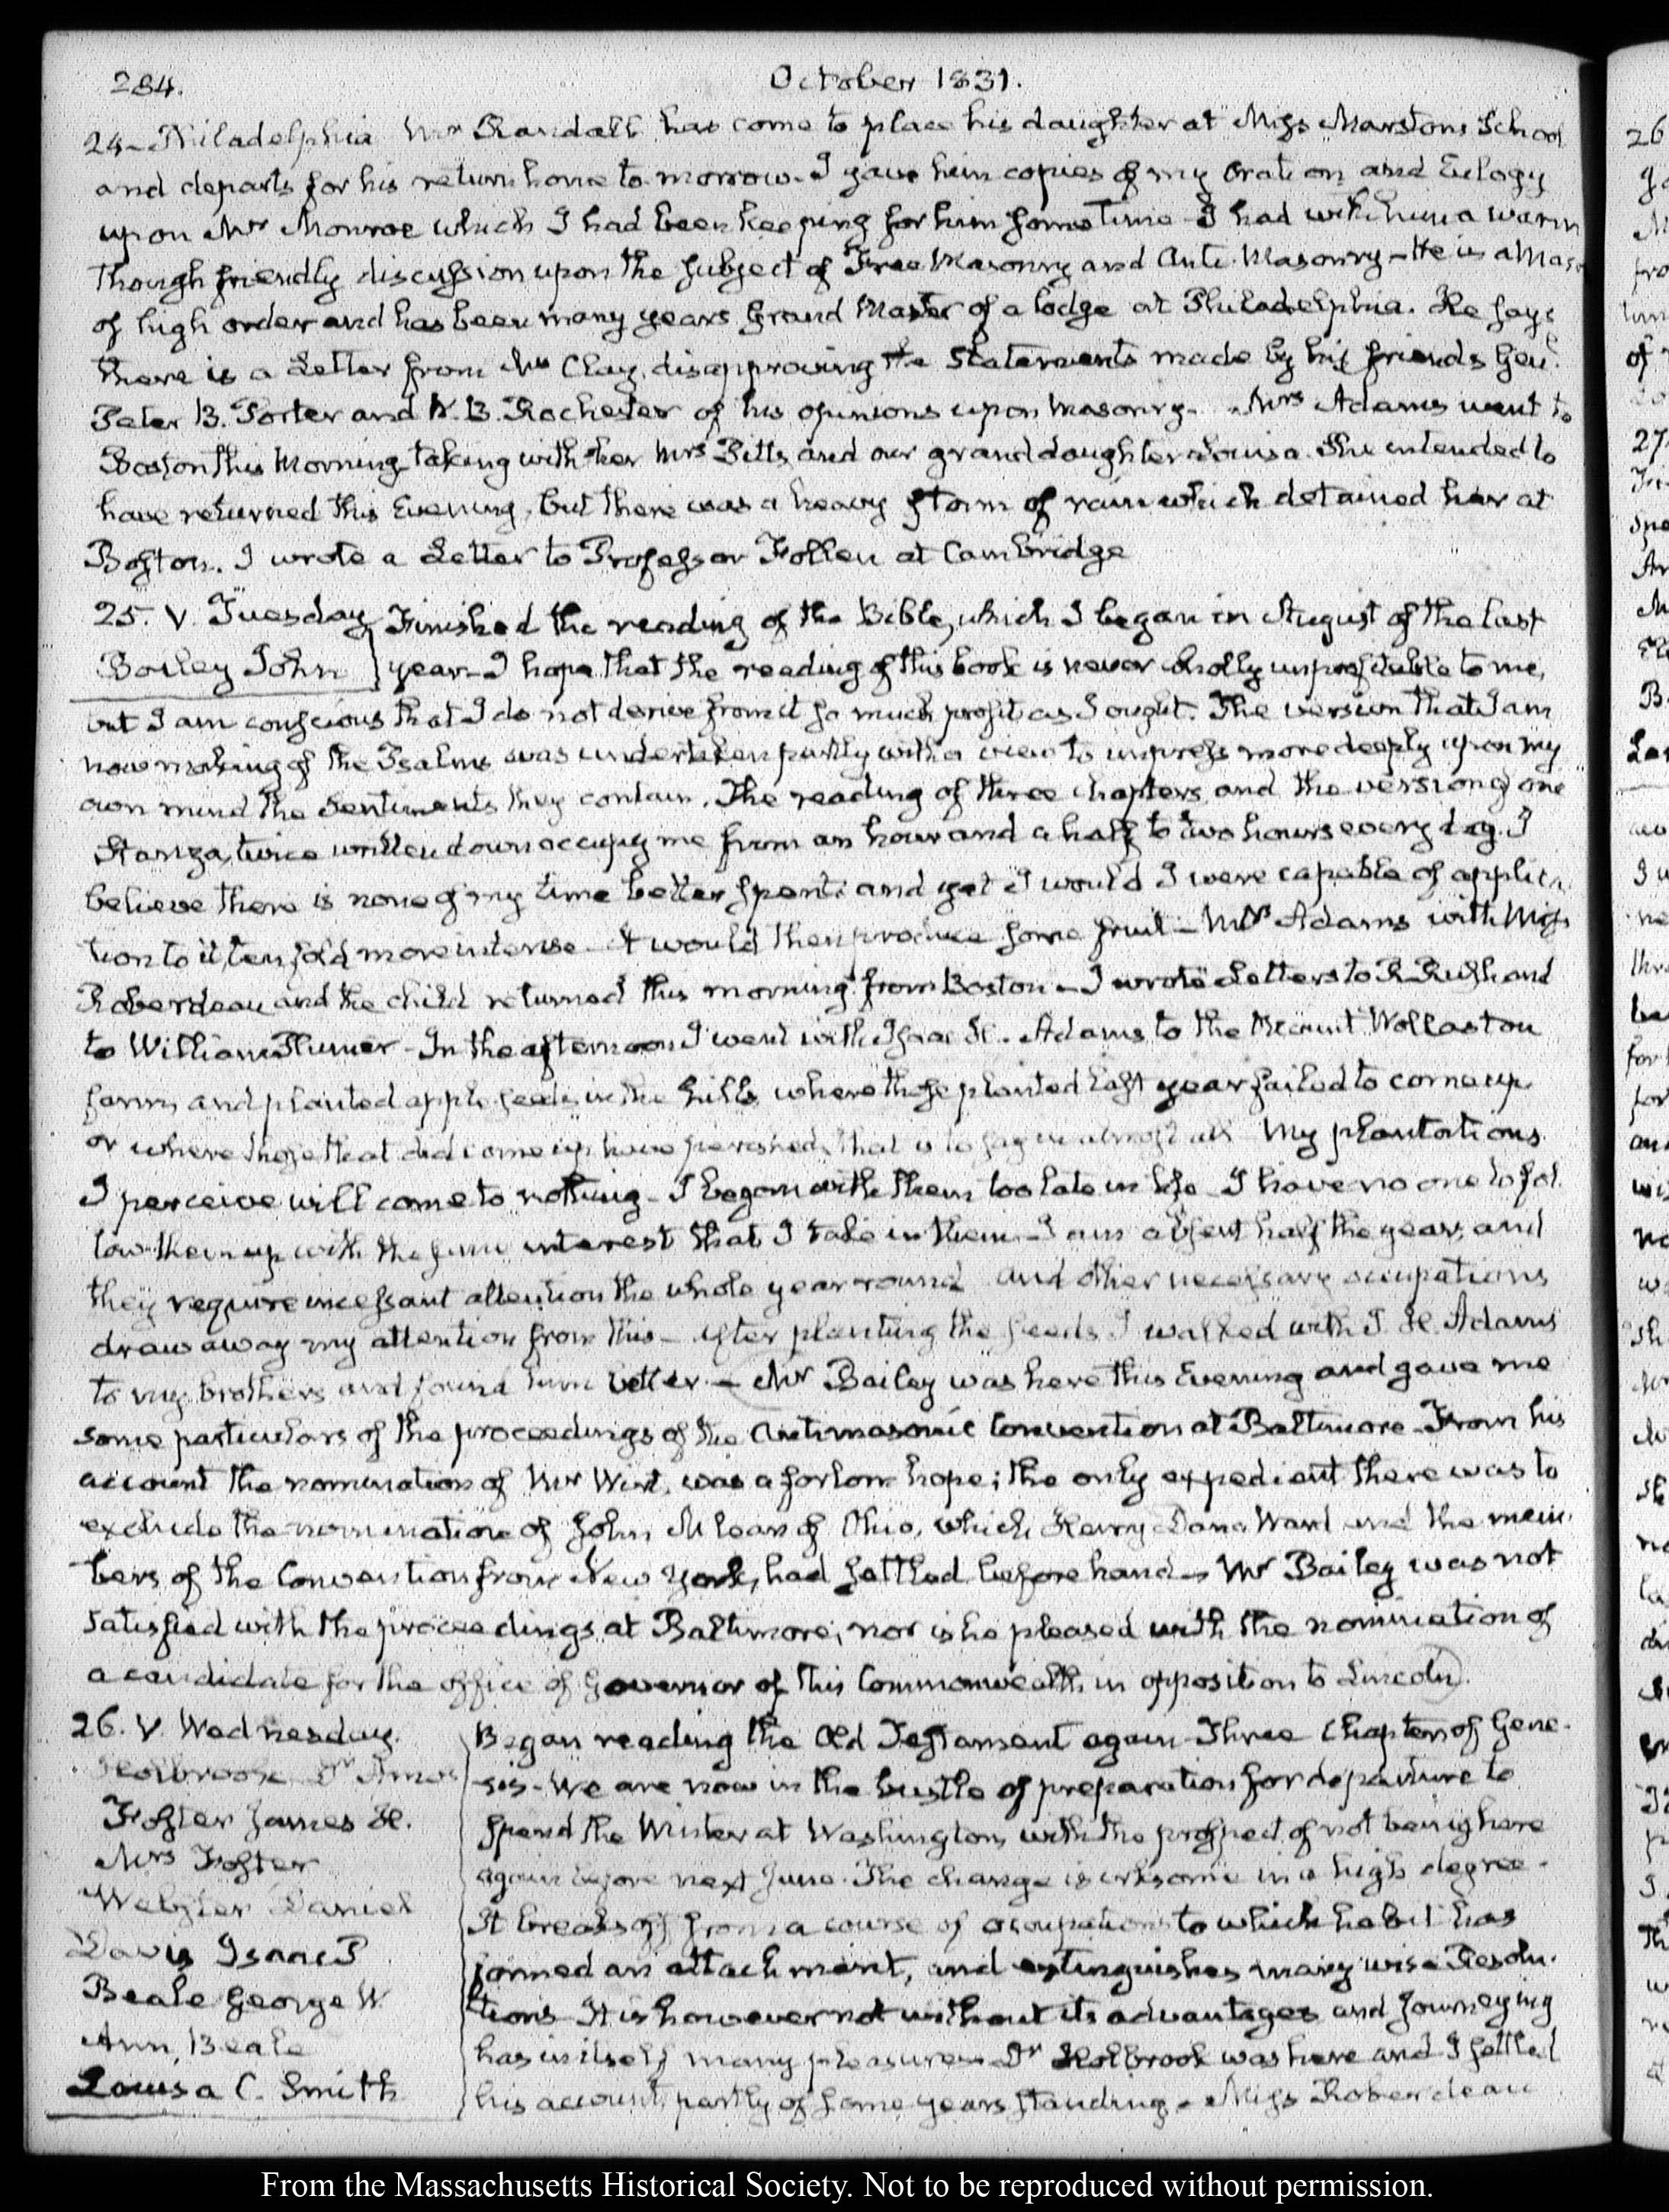 284.
October 1831.
24-Philadelphia Mr Randall has come to place his daughter at Miss Marstons School
and departs for his return home to-morrow. I gave him copies of my Oration and Eulogy
upon Mr Monroe which I had been keeping for him some time I had with him a warm
though friendly discussion upon the subject of Free Masonry and Anti-Masonry-He is a Mason
of high order and has been many years Grand Master of a lodge at Philadelphia. He says
there is a Letter from Mr Clay, disapproving the Statements made by his friends Genl.
Peter B. Porter and W. B. Rochester of his opinions upon Masonry- Mrs Adams went to
Boston this Morning taking with her Mrs and our granddaughter Louisa. She intended to
have returned this Evening, but there was a heavy storm of rain which detained her at
Boston. I wrote a Letter to Professor Follen at Cambridge
25. V. Tuesday
Bailey John
Finished the reading of the Bible, which I began in August of the last
year-I hope that the reading of this book is never wholly unprofitable to me,
but I am conscious that I do not derive from it so much profit as I ought. The version that I am
now making of the Psalms was undertaken partly with a view to impress more deeply upon my
own mind the Sentiments they contain. The reading of three chapters, and the version of one
Stanza, twice written down occupy me from an hour and a half to two hours every day. I
believe there is none of my time better spent: and yet I would I were capable of applica-
tion to it, tenfold more intense-It would then produce some fruit-Mrs Adams with Miss
Roberdeau and the child returned this morning from Boston-I wrote Letters to R. Rush and
to William Plumer-In the afternoon I went with Isaac H. Adams to the Mount Wollaston
farm, and planted apple seeds in the hills where those planted last year failed to come up,
or where those that did come up have perished, that is to say in almost all My plantations
I perceive will come to nothing-I began with them too late in life-I have no one to fol-
low them up with the same interest that I take in them-I am absent half the year, and
they require incessant attention the whole year round and other necessary occupations
draw away my attention from this-After planting the seeds I walked with I. H. Adams
to my brothers and found him better-Mr Bailey was here this Evening and gave me
some particulars of the proceedings of the Antimasonic Convention at Baltimore-From his
account the nomination of Mr Wirt, was a forlorn hope; the only expedient there was to
exclude the nomination of John McLean of Ohio, which Henry Dana Ward and the mem-
bers of the Convention from New York, had settled before hand-Mr Bailey was not
satisfied with the proceedings at Baltimore; nor is he pleased with the nomination of
a candidate for the office of Governor of this Commonwealth in opposition to Lincoln.
26. V. Wednesday.
Holbrook Dr Amos
Foster James H.
Mrs Foster
Webster Daniel
Davis Isaac P
Beale George W.
Ann Beale
Louisa C. Smith
Began reading the Old Testament again-Three Chapters of Gene-
sis-We are now in the bustle of preparation for departure to
spend the Winter at Washington, with the prospect of not being here
again before next June. The change is irksome in a high degree-
It breaks off from a course of occupations to which habit has
formed an attachment, and extinguishes many wise Resolu-
tions-It is however not without its advantages and journeying
has in itself many pleasures-Dr Holbrook was here and I settled
his account, partly of some years standing-Miss Roberdeau
From the Massachusetts Historical Society. Not to be reproduced without permission.